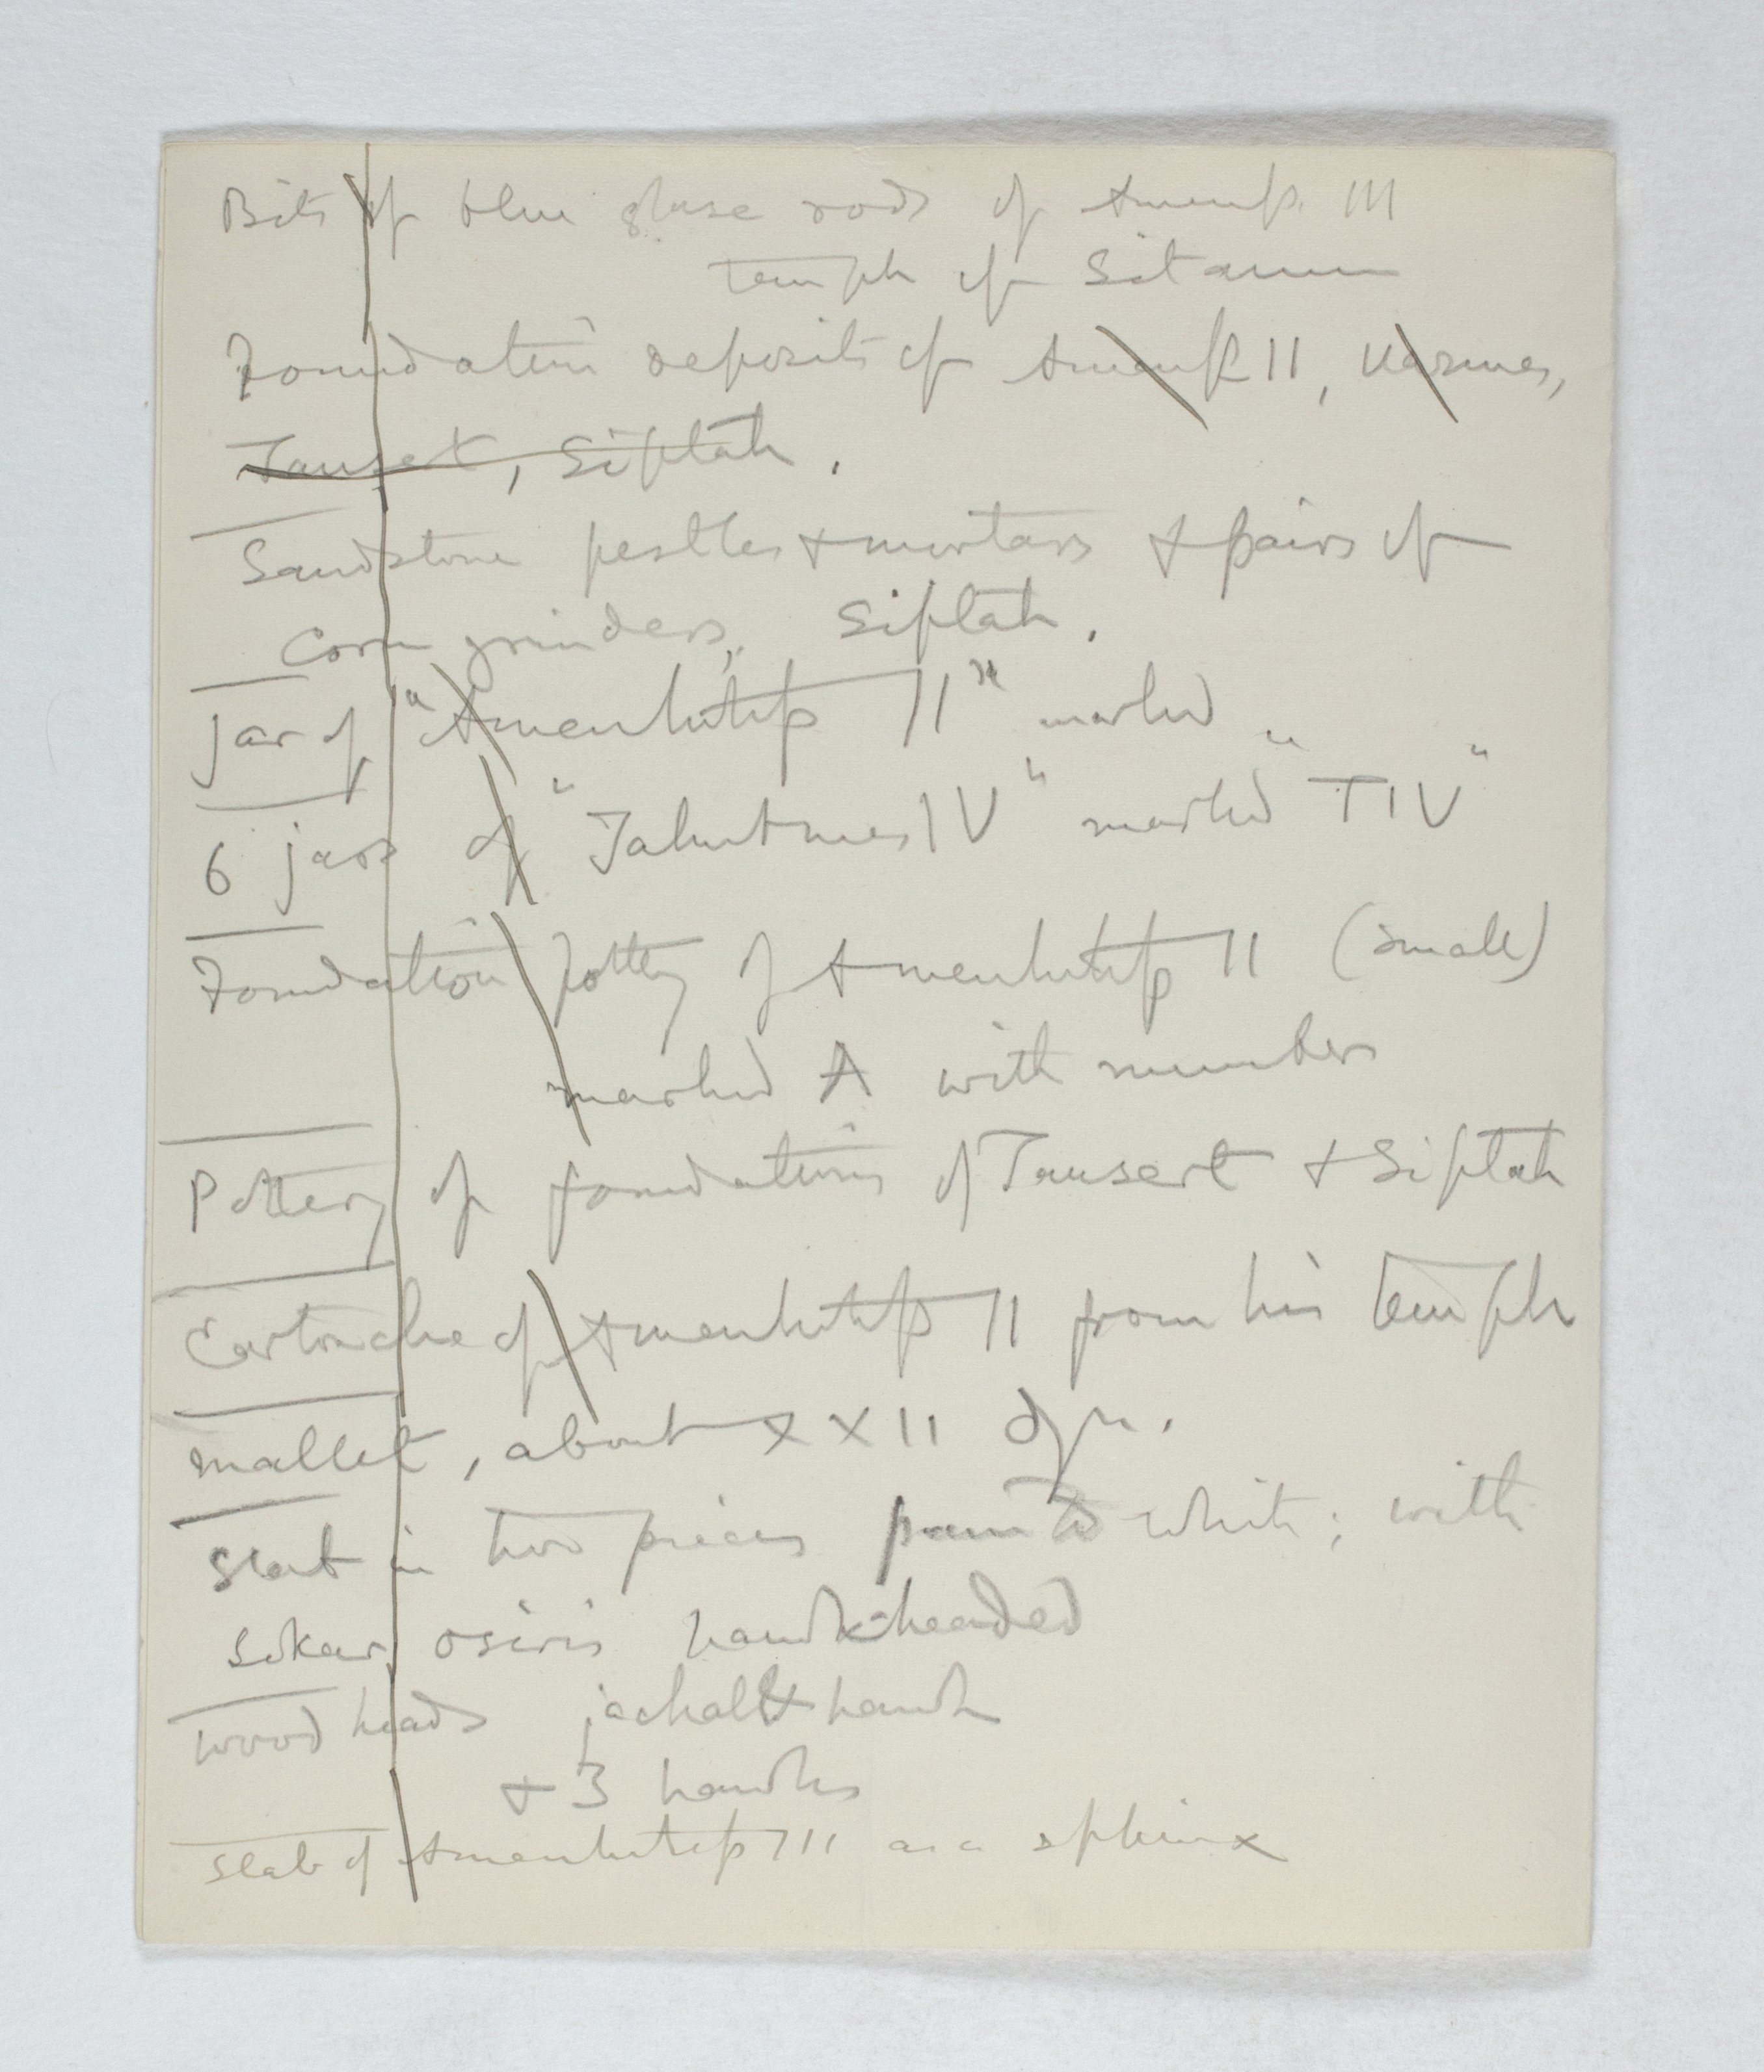 Bits of blue glaze rods of Amenhp. III
temple of Sitamun
Foundation deposits of Amenhp II, Uazmes,
Tausert, Siptah.
Sandstone pestles + mortars + pairs of
corn grinders, Siptah.
Jar of "Amenhotep II" marked "
6 jars of "Tahutmes IV" marked "TIV"
Foundation pottery of Amenhotep II (small)
marked A with numbers
Pottery of foundations of Tausert + Siptah
Cartouche of Amenhotep II from his temple
mallet, about XXII dyn.
Slab in two pieces painted white; with
Sokar osiris hawk-headed
wood heads jackal & hawk
+ 3 hawks
Slab of Amenhotep III as a sphinx